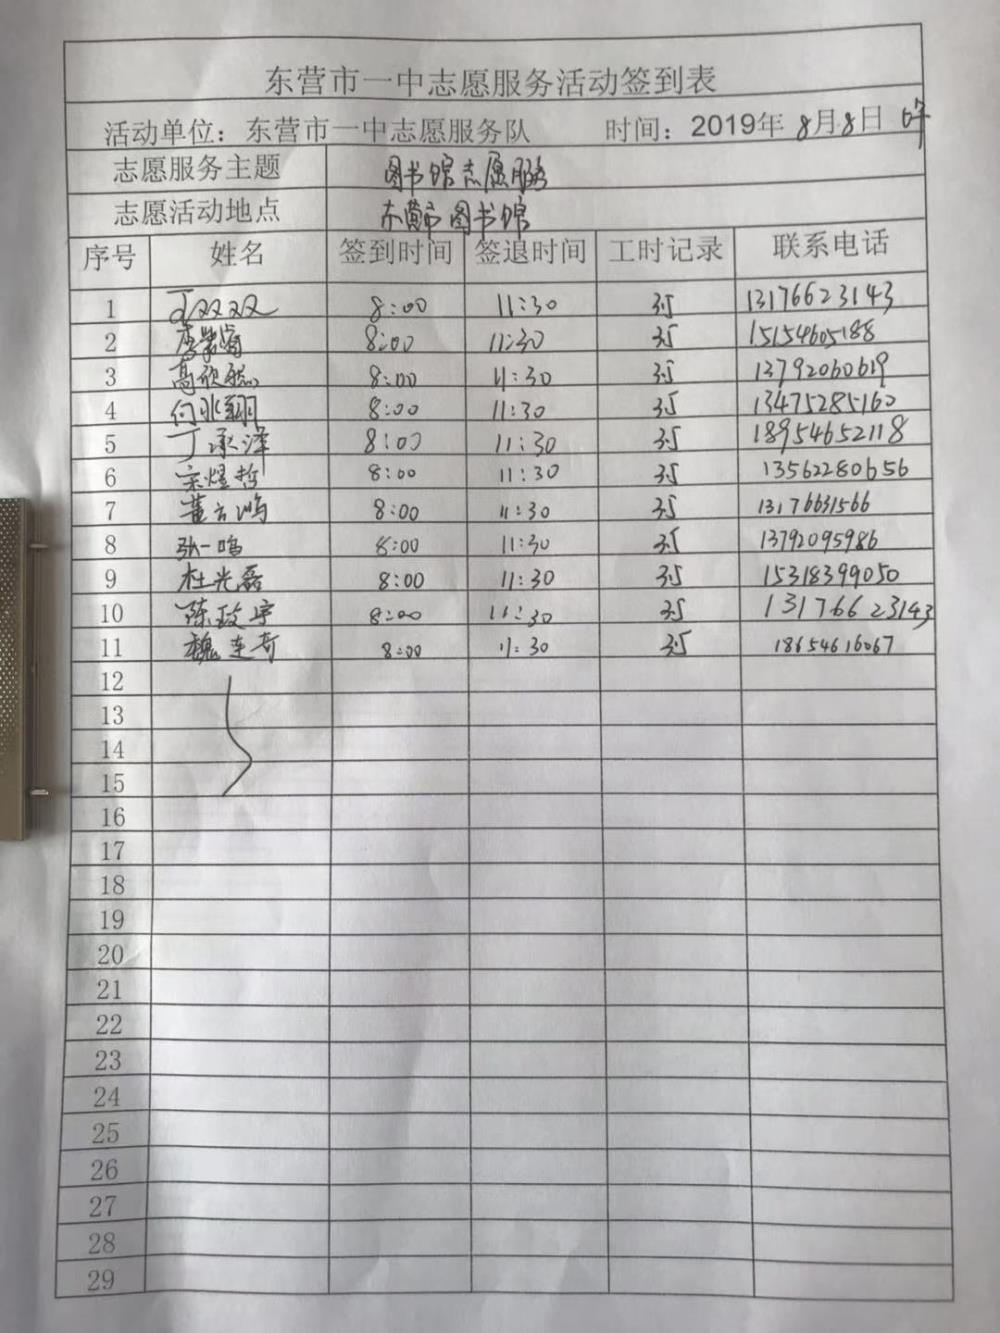 东营市一中志愿服务活动签到表
活动单位：东营市一中志愿服务队 时间：2019年8月8日
志愿服务主题 图书馆志愿服务
志愿活动地点 东营市图书馆
序号 姓名 签到时间 签退时间 工时记录 联系电话
1 丁双双 8:00 11:30 3.5 13176623143
2 8:00 11:30 3.5 15154605188
3 高欣 8:00 11:30 3.5 13792060619
4 何冰翔 8:00 11:30 3.5 13475285160
5 丁承泽 8:00 11:30 3.5 18954652118
6 宋煜哲 8:00 11:30 3.5 13562280656
7 董云鸿 8:00 11:30 3.5 13176631566
8 张一鸣 8:00 11:30 3.5 13792095986
9 杜光磊 8:00 11:30 3.5 15318399050
10 陈政宇 8:00 11:30 3.5 13176623143
11 魏连奇 8:00 11:30 3.5 18654616067
12
13
14
15
16
17
18
19
20
21
22
23
24
25
26
27
28
29